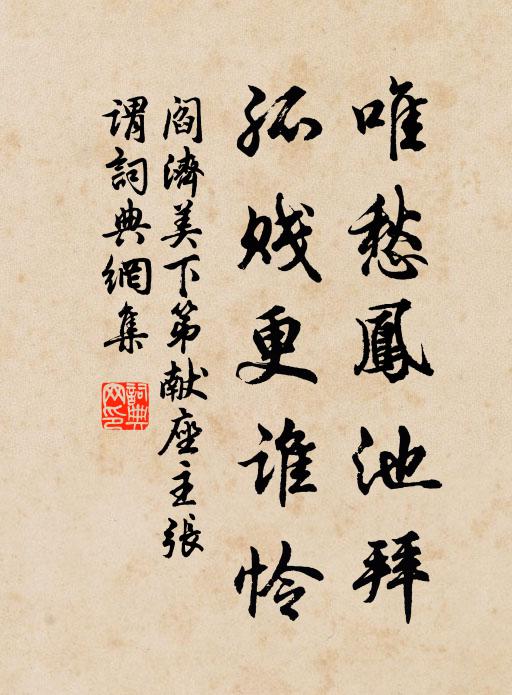 唯愁鳳池拜
孤贱更谁怜
阎濟美下第献座主張
谓詞典網集
詞典
网印